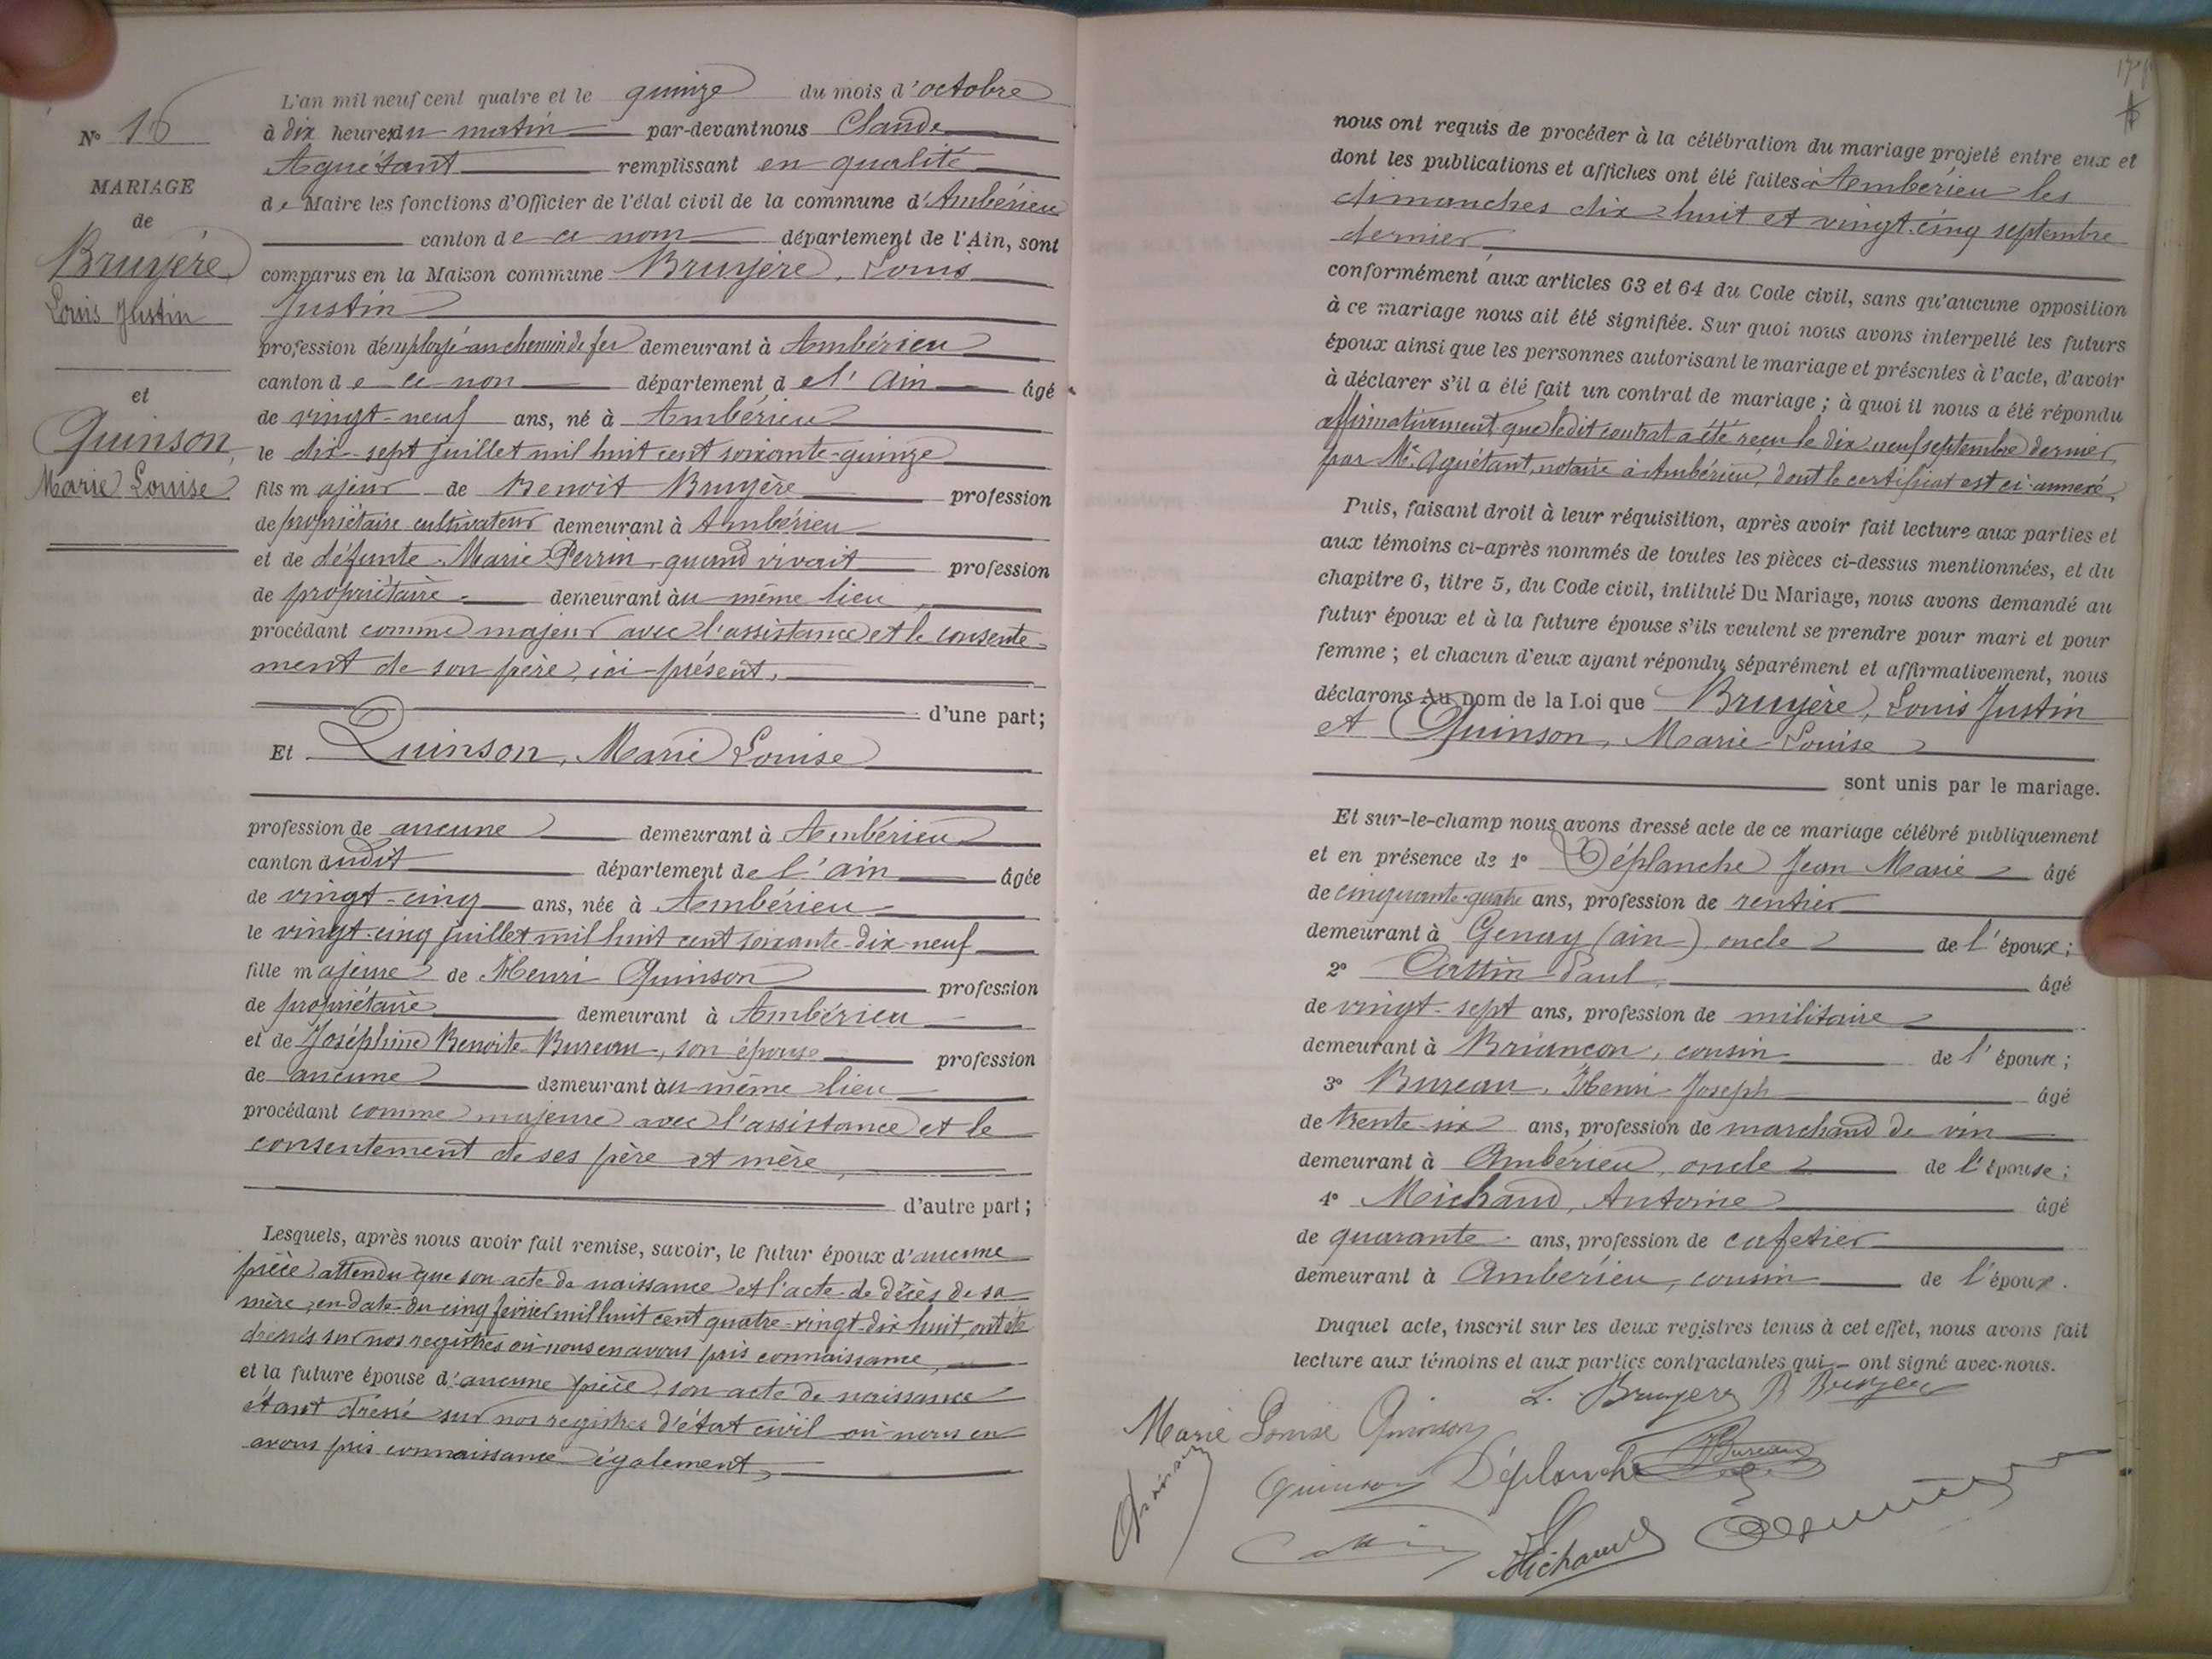 N° 16
MARIAGE
de
Bruyère
Louis Justin
et
Quinson,
Marie Louise
L'an mil neuf cent quatre et le quinze du mois d'octobre
à dix heures du matin par-devant nous Claude
Aguétant remplissant en qualité
de Maire les fonctions d'Officier de l'état civil de la commune d'Ambérieu
canton de ce nom département de l'Ain, sont
comparus en la Maison commune Bruyère, Louis
Justin
profession d'employé au chemin de fer demeurant à Ambérieu
canton de ce nom département de l'Ain âgé
de vingt-neuf ans, né à Ambérieu
le dix-sept juillet mil huit cent soixante-quinze
fils majeur de Benoît Bruyère profession
de propriétaire cultivateur demeurant à Ambérieu
et de défunte Marie Perrin quand vivait profession
de propriétaire demeurant au même lieu,
procédant comme majeur avec l'assistance et le consente-
ment de son père, ici présent,
d'une part;
Et Quinson, Marie Louise
profession de aucune demeurant à Ambérieu
canton dudit département de l'ain âgée
de vingt-cinq ans, née à Ambérieu
le vingt-cinq juillet mil huit cent soixante-dix-neuf
fille majeure de Henri Quinson profession
de propriétaire demeurant à Ambérieu
et de Joséphine Benoite Bureau, son épouse profession
de aucune demeurant au même lieu
procédant comme majeure avec l'assistance et le
consentement de ses père et mère,
d'autre part;
Lesquels, après nous avoir fait remise, savoir, le futur époux d'aucune
pièce attendu que son acte de naissance et l'acte de décès de sa
mère, en date du cinq février mil huit cent quatre-vingt-dix huit, ont été
dressés sur nos registres où nous en avons pris connaissance,
et la future épouse d'aucune pièce, son acte de naissance
étant dressé sur nos registres d'état civil où nous en
avons pris connaissance également,
nous ont requis de procéder à la célébration du mariage projeté entre eux et
dont les publications et affiches ont été faites à Ambérieu les
dimanches dix huit et vingt-cinq septembre
dernier
conformément aux articles 63 et 64 du Code civil, sans qu'aucune opposition
à ce mariage nous ait été signifiée. Sur quoi nous avons interpellé les futurs
époux ainsi que les personnes autorisant le mariage et présentes à l'acte, d'avoir
à déclarer s'il a été fait un contrat de mariage; à quoi il nous a été répondu
affirmativement, que ledit contrat a été reçu le dix neuf septembre dernier
par Me Aguétant, notaire à Ambérieu, dont le certificat est ci-annexé.
Puis, faisant droit à leur réquisition, après avoir fait lecture aux parties et
aux témoins ci-après nommés de toutes les pièces ci-dessus mentionnées, et du
chapitre 6, titre 5, du Code civil, intitulé Du Mariage, nous avons demandé au
futur époux et à la future épouse s'ils veulent se prendre pour mari et pour
femme; et chacun d'eux ayant répondu séparément et affirmativement, nous
déclarons Au nom de la Loi que Bruyère, Louis Justin
et Quinson, Marie Louise
sont unis par le mariage.
Et sur-le-champ nous avons dressé acte de ce mariage célébré publiquement
et en présence de 1° Déplanche Jean Marie âgé
de cinquante-quatre ans, profession de rentier
demeurant à Genay (ain) oncle de l'époux;
2° Cattin Paul, âgé
de vingt-sept ans, profession de militaire
demeurant à Briancon, cousin de l'époux;
3° Bureau, Henri Joseph âgé
de trente-six ans, profession de marchand de vin
demeurant à Ambérieu, oncle de l'épouse;
4° Michaud, Antoine âgé
de quarante ans, profession de cafetier
demeurant à Ambérieu, cousin de l'époux.
Duquel acte, inscrit sur les deux registres tenus à cet effet, nous avons fait
lecture aux témoins et aux parties contractantes qui ont signé avec nous.
L. Bruyère B Bruyère
Marie Louise Quinson
Quinson Déplanche Bureau
Cattin Michaud